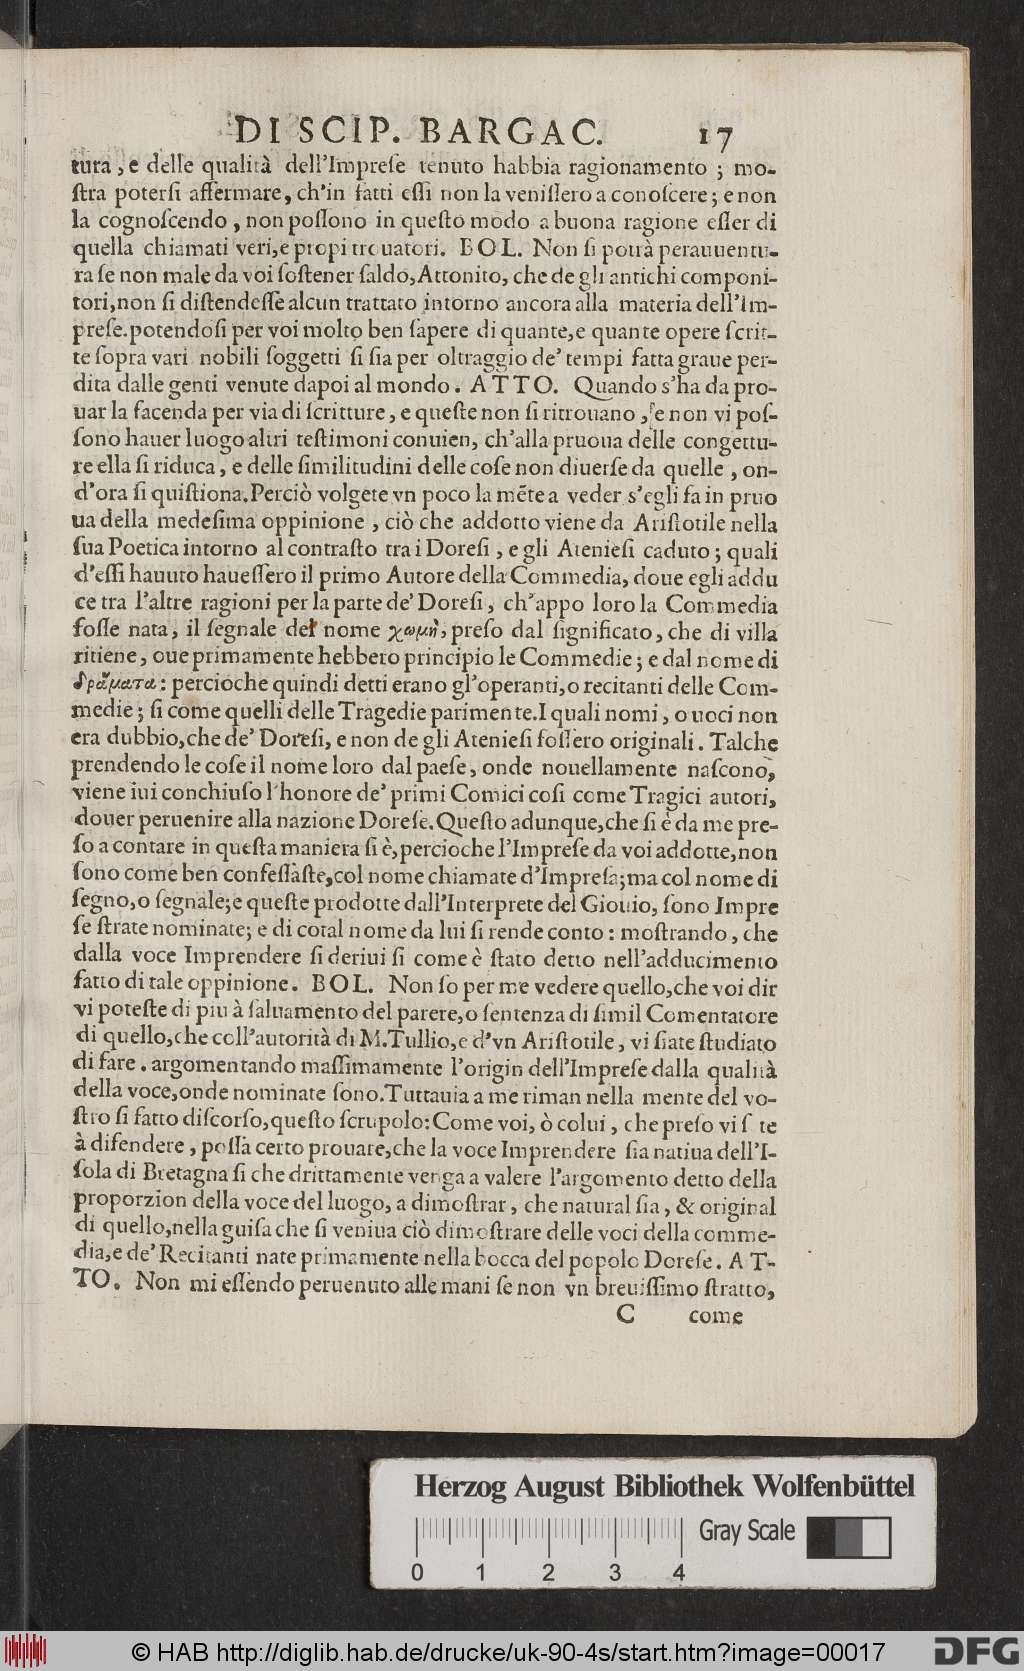 DI SCIP. BARGAC. 17
tura, e delle qualità dell'Impreſe tenuto habbia ragionamento ; mo-
ſtra poterſi affermare, ch'in fatti eſſi non la veniſſero a conoſcere; e non
la cognoſcendo, non poſſono in queſto modo a buona ragione eſſer di
quella chiamati veri,e propi trouatori. BOL. Non ſi potrà perauuentu-
ra ſe non male da voi ſoſtener ſaldo,Attonito, che de gli antichi componi-
tori,non ſi diſtendeſſe alcun trattato intorno ancora alla materia dell'Im-
preſe.potendoſi per voi molto ben ſapere di quante,e quante opere ſcrit-
te ſopra vari nobili ſoggetti ſi ſia per oltraggio de' tempi fatta graue per-
dita dalle genti venute dapoi al mondo. ATTO. Quando s'ha da pro-
uar la facenda per via di ſcritture, e queſte non ſi ritrouano, ſe non vi poſ-
ſono hauer luogo altri teſtimoni conuien, ch'alla pruoua delle congettu-
re ella ſi riduca, e delle ſimilitudini delle coſe non diuerſe da quelle, on-
d'ora ſi quiſtiona.Perciò volgete vn poco la mẽte a veder s'egli fa in pruo
ua della medeſima oppinione, ciò che addotto viene da Ariſtotile nella
ſua Poetica intorno al contraſto tra i Doreſi, e gli Atenieſi caduto; quali
d'eſſi hauuto haueſſero il primo Autore della Commedia, doue egli addu
ce tra l'altre ragioni per la parte de' Doreſi, ch'appo loro la Commedia
foſſe nata, il ſegnale del nome χωμὴ, preſo dal ſignificato, che di villa
ritiene, oue primamente hebbero principio le Commedie; e dal nome di
δρᾶματα: percioche quindi detti erano gl'operanti,o recitanti delle Com-
medie; ſi come quelli delle Tragedie parimente.I quali nomi, o uoci non
era dubbio,che de' Doreſi, e non de gli Atenieſi foſſero originali. Talche
prendendo le coſe il nome loro dal paeſe, onde nouellamente naſcono,
viene iui conchiuſo l'honore de' primi Comici coſi come Tragici autori,
douer peruenire alla nazione Doreſe.Queſto adunque,che ſi è da me pre-
ſo a contare in queſta maniera ſi è,percioche l'Impreſe da voi addotte,non
ſono come ben confeſſaſte,col nome chiamate d'Impreſa;ma col nome di
ſegno,o ſegnale;e queſte prodotte dall'Interprete del Giouio, ſono Impre
ſe ſtrate nominate; e di cotal nome da lui ſi rende conto: moſtrando, che
dalla voce Imprendere ſi deriui ſi come è ſtato detto nell'adducimento
fatto di tale oppinione. BOL. Non ſo per me vedere quello,che voi dir
vi poteſte di piu à ſaluamento del parere,o ſentenza di ſimil Comentatore
di quello,che coll'autorità di M.Tullio,e d'vn Ariſtotile, vi ſiate ſtudiato
di fare. argomentando maſſimamente l'origin dell'Impreſe dalla qualità
della voce,onde nominate ſono.Tuttauia a me riman nella mente del vo-
ſtro ſi fatto diſcorſo,queſto ſcrupolo:Come voi, ò colui, che preſo vi ſ te
à difendere, poſſa certo prouare,che la voce Imprendere ſia natiua dell'I-
ſola di Bretagna ſi che drittamente venga a valere l'argomento detto della
proporzion della voce del luogo, a dimoſtrar, che natural ſia, & original
di quello,nella guiſa che ſi veniua ciò dimoſtrare delle voci della comme-
dia,e de' Recitanti nate primamente nella bocca del popolo Doreſe. AT-
TO. Non mi eſſendo peruenuto alle mani ſe non vn breuiſſimo ſtratto,
C come
Herzog August Bibliothek Wolfenbüttel
Gray Scale
0 1 2 3 4
© HAB http://diglib.hab.de/drucke/uk-90-4s/start.htm?image=00017
DFG